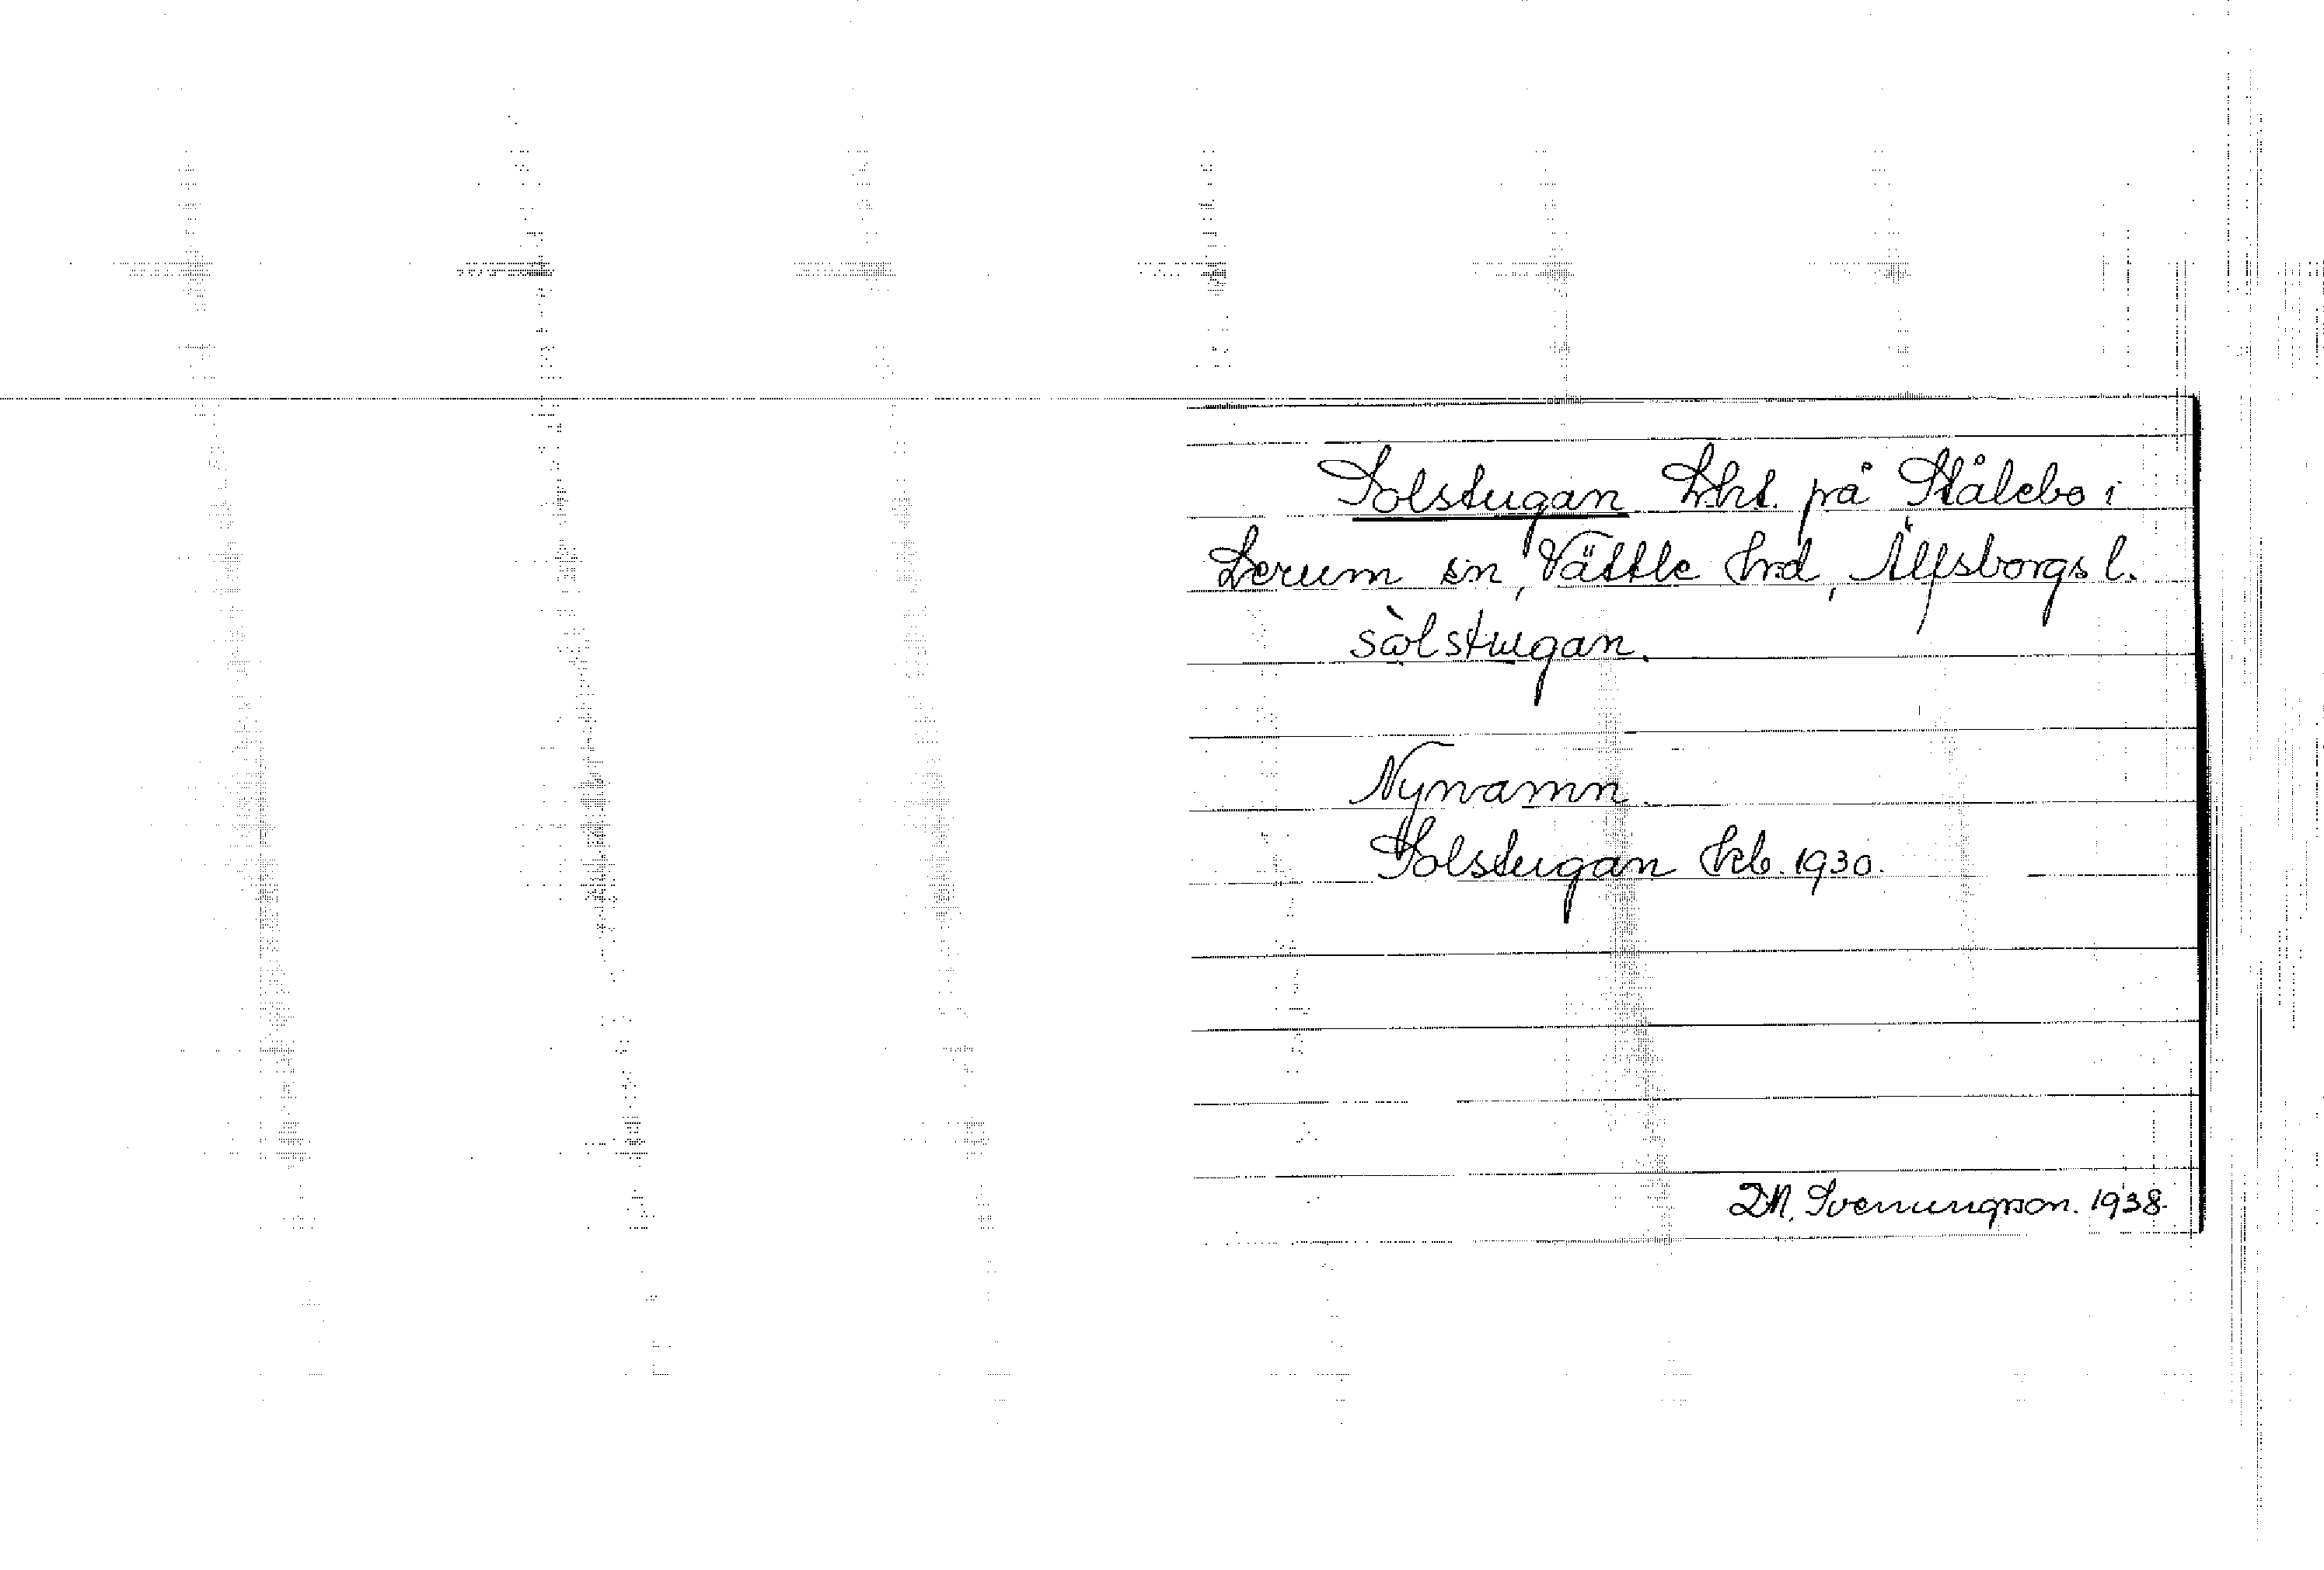 Solstugan Lht. på Stålebo i
Lerum sn, Vättle hrd, Älfsborgs l.
sòlstugan.
Nynamn
Solstugan Krb. 1930.
D.N. Svenungsson. 1938.